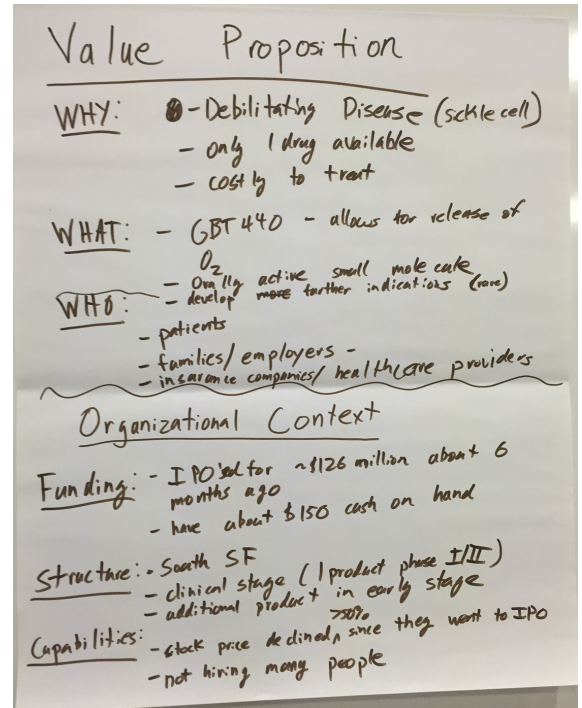 Value Proposition
WHY: - Debilitating Disease (sckle cell)
- only 1 drug available
- costly to treat
WHAT: - GBT 440 - allows for release of
O2
- Orally active small molecule
- develop more further indications (rare)
WHO:
- patients
- families/employers -
- insurance companies/healthcare providers
Organizational Context
Funding: - IPO'ed for ~$126 million about 6
months ago
- have about $150 cash on hand
Structure: - South SF
- clinical stage (1 product phase I/II)
- additional product in early stage
>50%
Capabilities: - stock price declined, since they went to IPO
- not hiring many people